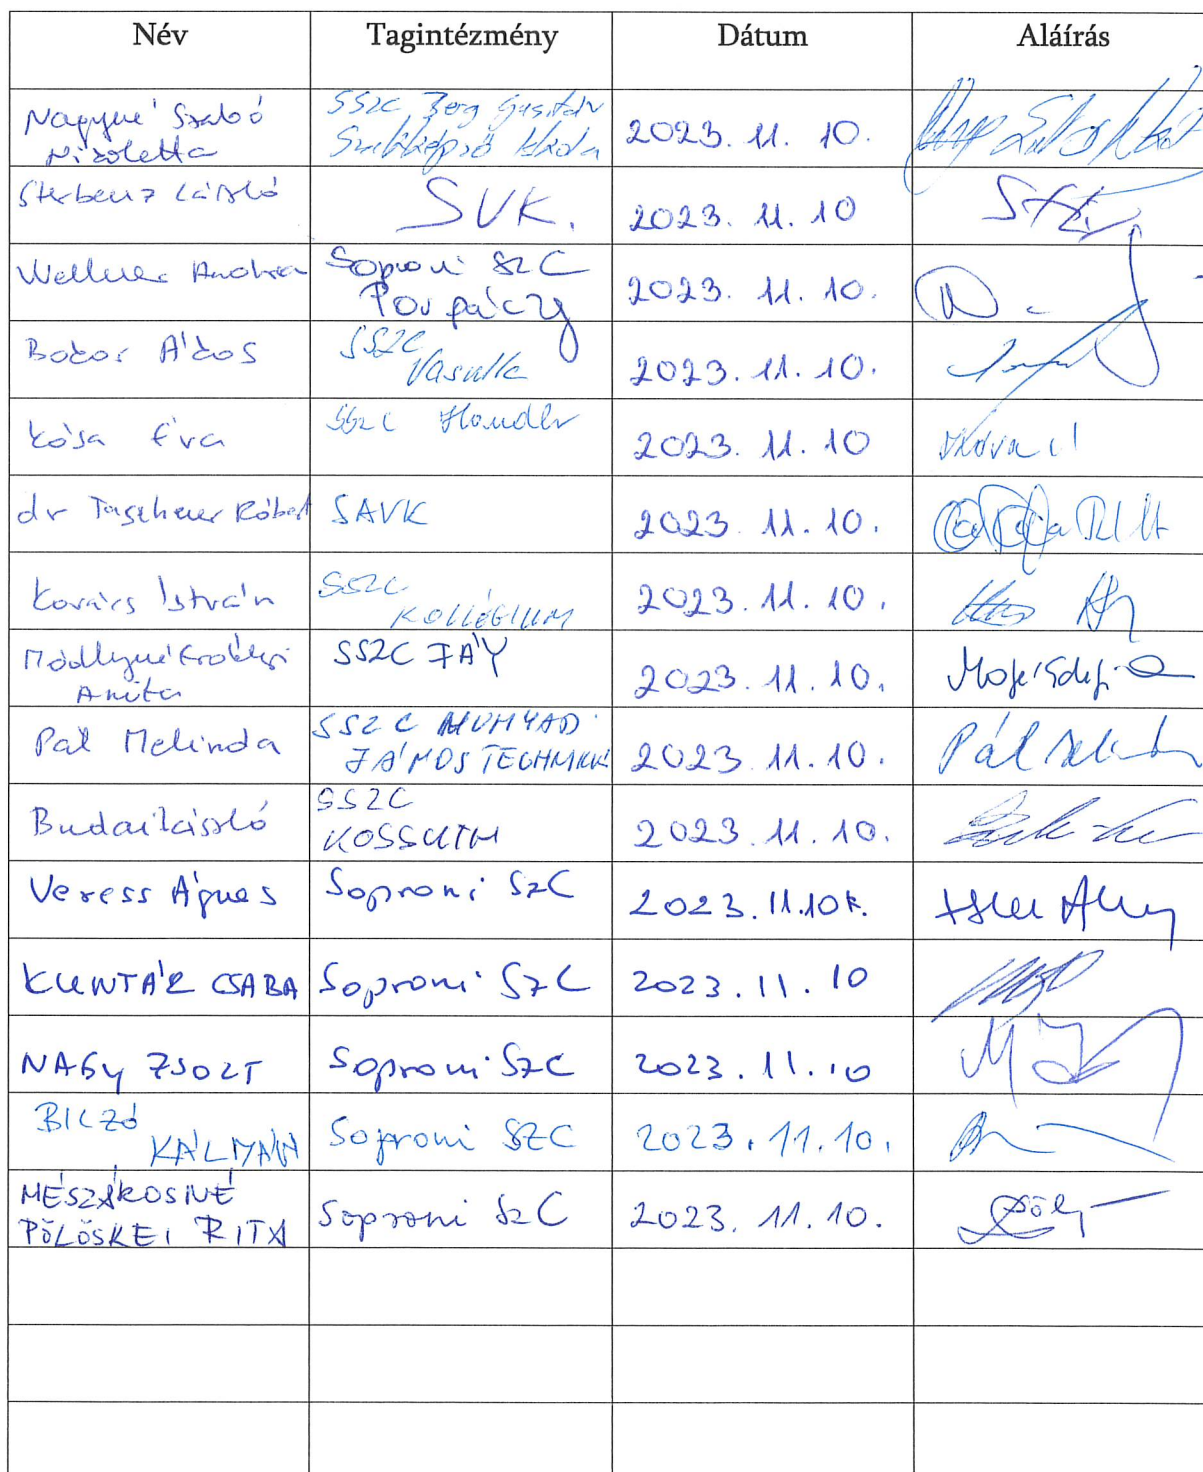 Név Tagintézmény Dátum Aláírás
Nagyné Szabó Nikoletta SSZC Berg Gusztáv Szakképző Iskola 2023. 11. 10.
Sterbenz László SVK. 2023. 11. 10
Wellner Andrea Soproni SZC Porpáczy 2023. 11. 10.
Bokor Ákos SSZC Vasvilla 2023. 11. 10.
Kósa Éva SSZC Handler 2023. 11. 10
dr Taschner Róbert SAVK 2023. 11. 10.
Kovács István SSZC KOLLÉGIUM 2023. 11. 10.
Anita SSZC FÁY 2023. 11. 10.
Pál Melinda SSZC HUNYADI JÁNOS TECHNIKUM 2023. 11. 10. Pál
Budai László SSZC KOSSUTH 2023. 11. 10.
Veress Ágnes Soproni SzC 2023. 11. 10.
KUNTÁR CSABA Soproni SzC 2023. 11. 10
NAGY ZSOLT Soproni SzC 2023. 11. 10
BICZÓ KÁLMÁN Soproni SZC 2023. 11. 10.
MÉSZÁROSNÉ PÖLÖSKEI RITA Soproni SzC 2023. 11. 10.